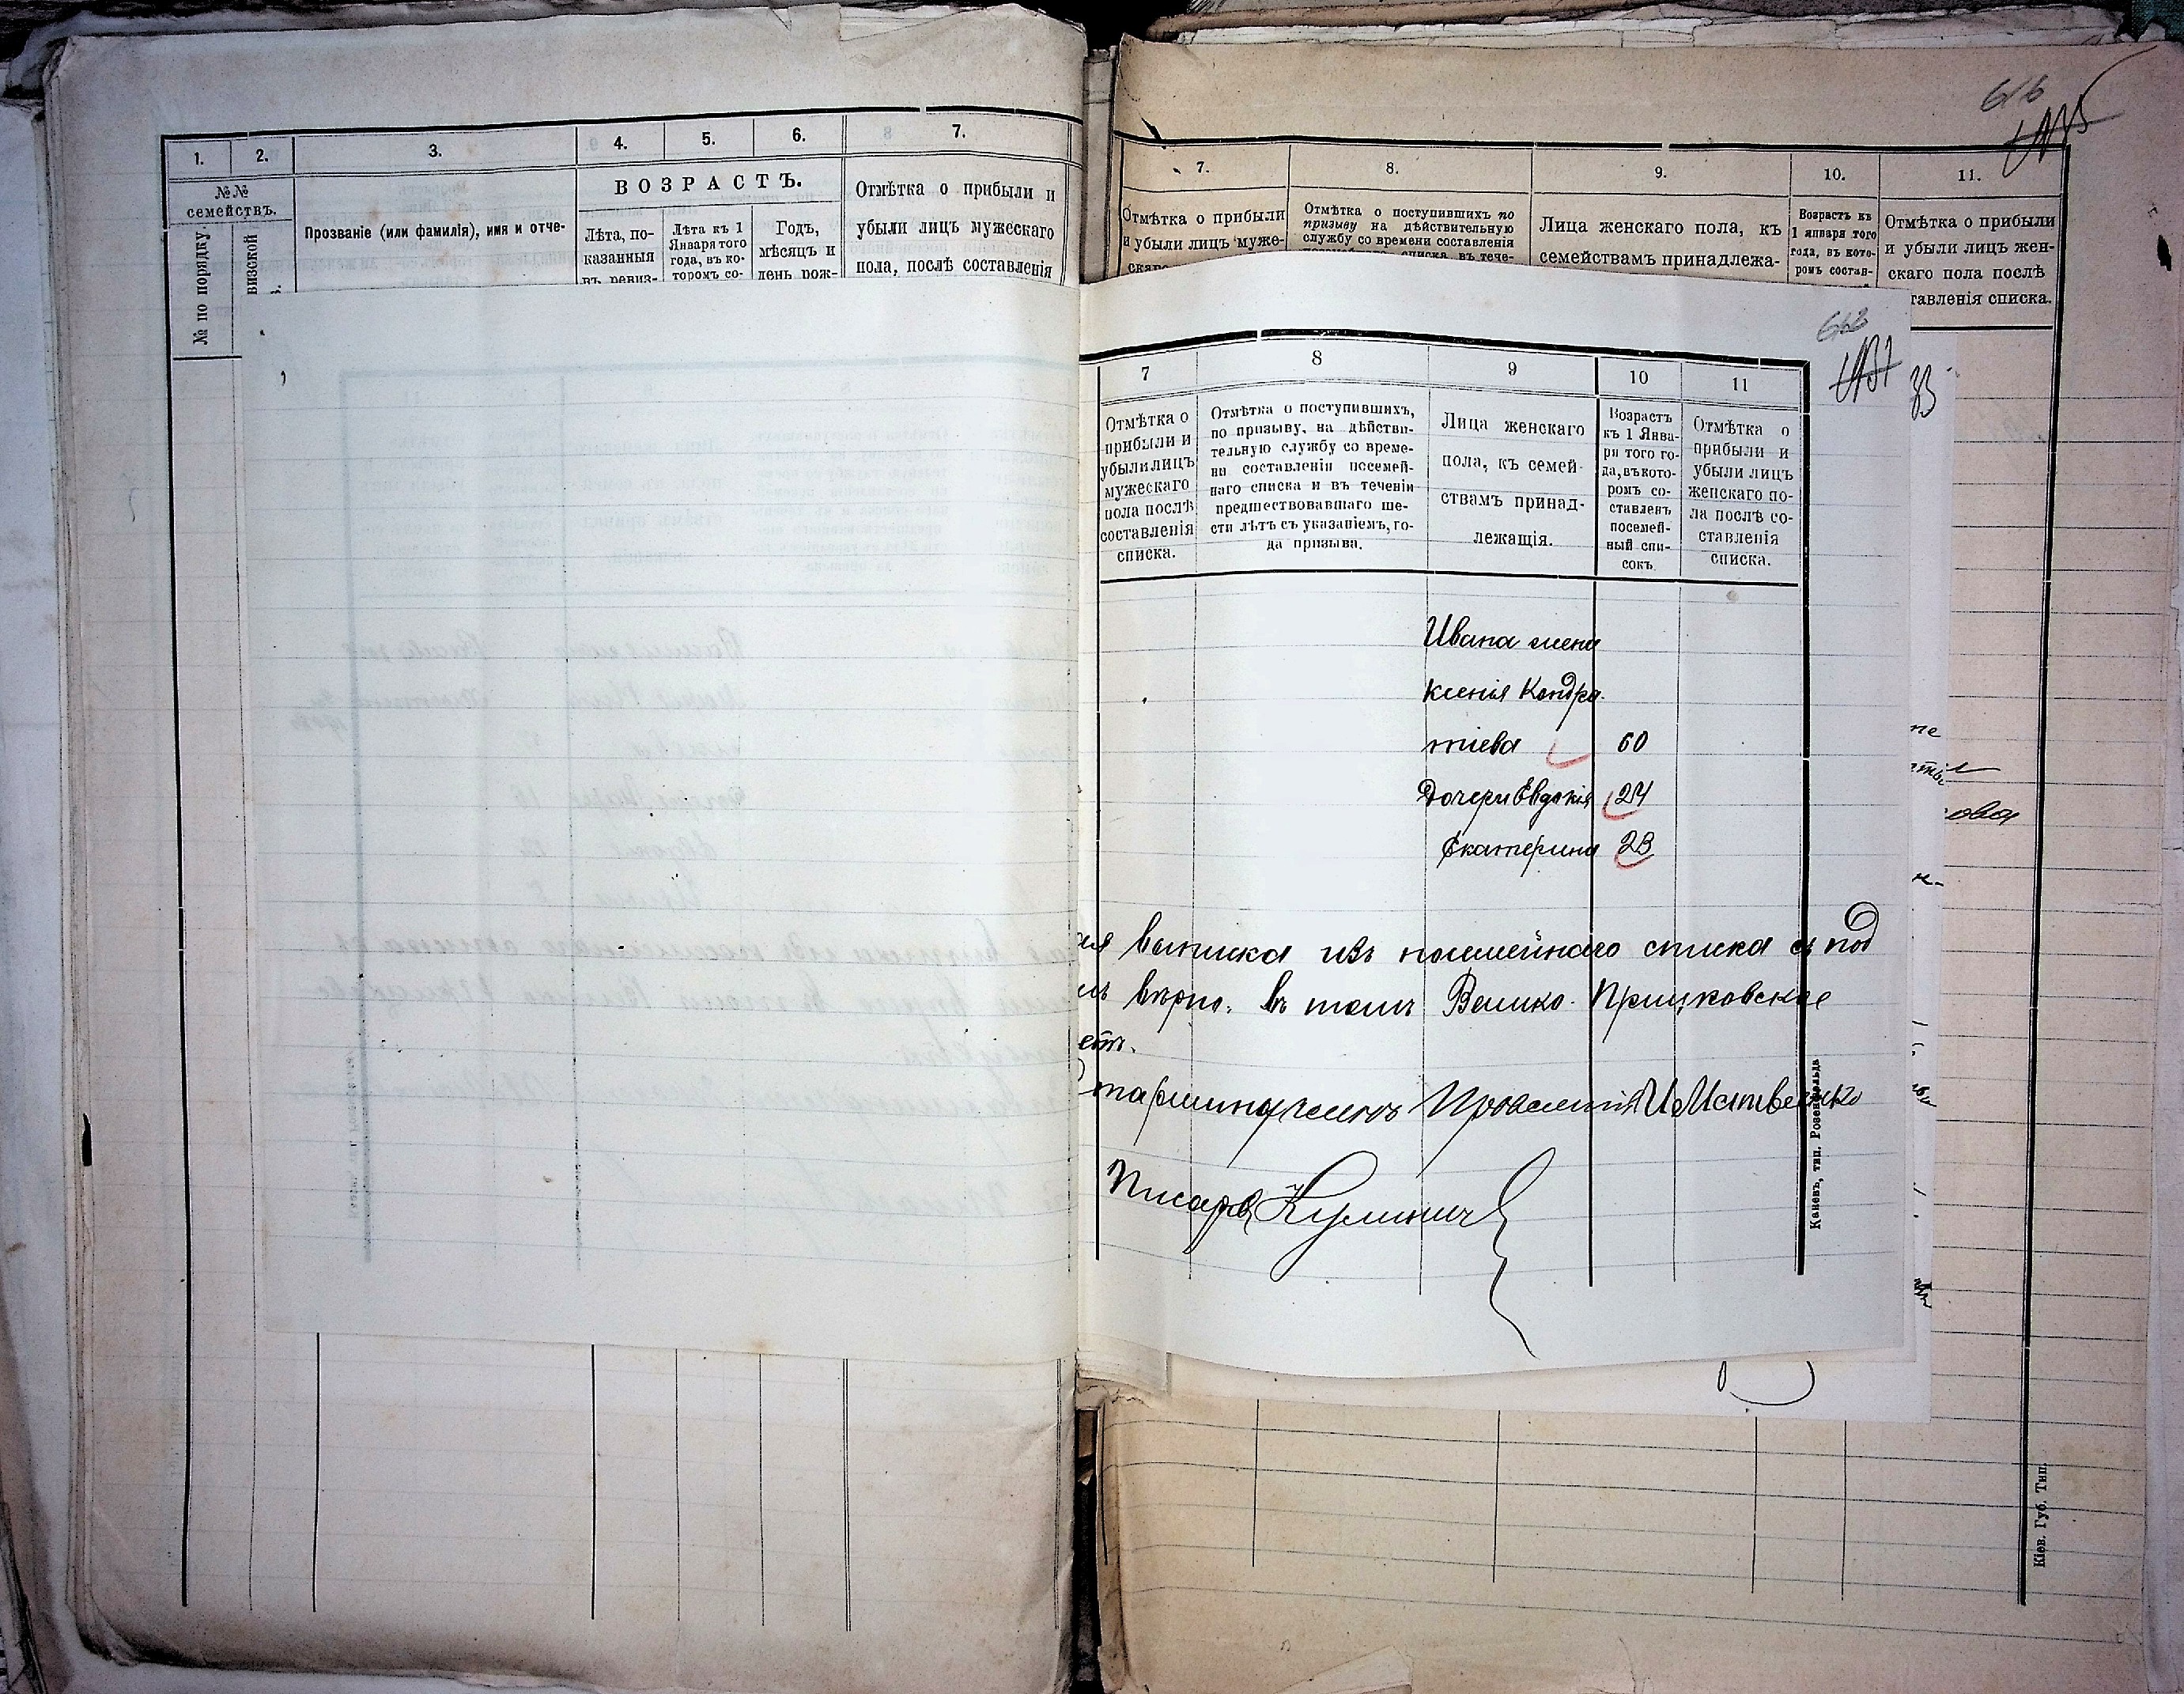 1.
2.
3.
4.
5.
6.
7.
№№
семействъ.
№ по порядку.
Прозваніе (или фамилія), имя и отче-
ВОЗРАСТЪ.
Лѣта, по-
казанныя
въ ревиз-
Лѣта къ 1
Января того
года, въ ко-
торомъ со-
Годъ,
мѣсяцъ и
день рож-
Отмѣтка о прибыли и
убыли лицъ мужескаго
пола, послѣ составленія
7.
8.
9.
10.
11.
Отмѣтка о прибыли
и убыли лицъ муже-
Отмѣтка о поступившихъ по
призыву на дѣйствительную
службу со времени составленія
Лица женскаго пола, къ
семействамъ принадлежа-
Возрастъ къ
1 января того
года, въ кото-
ромъ состав-
Отмѣтка о прибыли
и убыли лицъ жен-
скаго пола послѣ
ставленія списка.
7
8
9
10
11
Отмѣтка о
прибыли и
убыли лицъ
мужескаго
пола послѣ
составленія
списка.
Отмѣтка о поступившихъ,
по призыву, на дѣйстви-
тельную службу со време-
ни составленія посемей-
наго списка и въ теченіи
предшествовавшаго ше-
сти лѣтъ съ указаніемъ, го-
да призыва.
Лица женскаго
пола, къ семей-
ствамъ принад-
лежащія.
Возрастъ
къ 1 Янва-
ря того го-
да, въ кото-
ромъ со-
ставленъ
посемей-
ный спи-
сокъ
Отмѣтка о
прибыли и
убыли лицъ
женскаго по-
ла послѣ со-
ставленія
списка.
Ивана жена
Ксенія Кондра-
тіева 60
Дочери Евдокія 24
Екатерина 23
ая выписка изъ посемейнаго списка съ под
мъ вѣрно. въ томъ Велико-Прицковское
етъ.
Писарь Кулинич
Каневъ, тип. Розенфельда
Кіев. Губ. Тип.